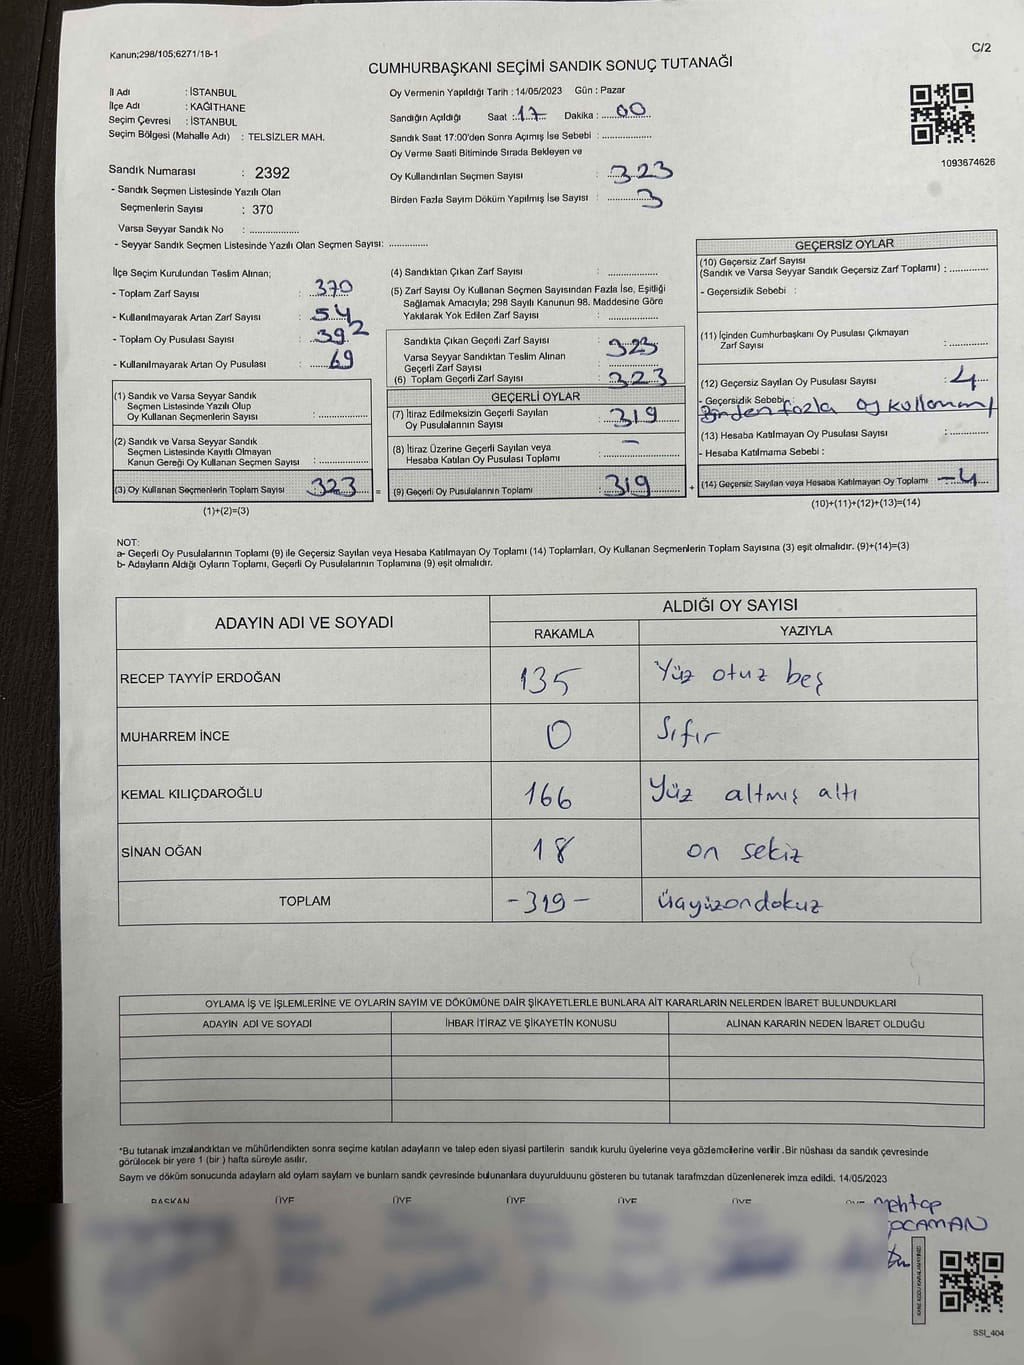 Kanun;298/105;6271/18-1
C/2
CUMHURBAŞKANI SEÇİMİ SANDIK SONUÇ TUTANAĞI
İl Adı : İSTANBUL
İlçe Adı : KAĞITHANE
Seçim Çevresi : İSTANBUL
Seçim Bölgesi (Mahalle Adı) : TELSİZLER MAH.
Oy Vermenin Yapıldığı Tarih : 14/05/2023 Gün : Pazar
Sandığın Açıldığı Saat : 17 Dakika : 00
Sandık Saat 17:00'den Sonra Açımış İse Sebebi :
Oy Verme Saati Bitiminde Sırada Bekleyen ve
Oy Kullandırılan Seçmen Sayısı : 323
Birden Fazla Sayım Döküm Yapılmış İse Sayısı : 3
1093674626
Sandık Numarası : 2392
- Sandık Seçmen Listesinde Yazılı Olan
Seçmenlerin Sayısı : 370
Varsa Seyyar Sandık No :
- Seyyar Sandık Seçmen Listesinde Yazılı Olan Seçmen Sayısı:
İlçe Seçim Kurulundan Teslim Alınan;
- Toplam Zarf Sayısı : 370
- Kullanılmayarak Artan Zarf Sayısı : 54
- Toplam Oy Pusulası Sayısı : 392
- Kullanılmayarak Artan Oy Pusulası : 69
(1) Sandık ve Varsa Seyyar Sandık
Seçmen Listesinde Yazılı Olup
Oy Kullanan Seçmenlerin Sayısı :
(2) Sandık ve Varsa Seyyar Sandık
Seçmen Listesinde Kayıtlı Olmayan
Kanun Gereği Oy Kullanan Seçmen Sayısı :
(3) Oy Kullanan Seçmenlerin Toplam Sayısı 323 =
(1)+(2)=(3)
(4) Sandıktan Çıkan Zarf Sayısı :
(5) Zarf Sayısı Oy Kullanan Seçmen Sayısından Fazla İse, Eşitliği
Sağlamak Amacıyla; 298 Sayılı Kanunun 98. Maddesine Göre
Yakılarak Yok Edilen Zarf Sayısı :
Sandıkta Çıkan Geçerli Zarf Sayısı : 323
Varsa Seyyar Sandıktan Teslim Alınan
Geçerli Zarf Sayısı :
(6) Toplam Geçerli Zarf Sayısı : 323
GEÇERLİ OYLAR
(7) İtiraz Edilmeksizin Geçerli Sayılan
Oy Pusulalarının Sayısı : 319
(8) İtiraz Üzerine Geçerli Sayılan veya
Hesaba Katılan Oy Pusulası Toplamı : –
(9) Geçerli Oy Pusulalarının Toplamı : 319 +
GEÇERSİZ OYLAR
(10) Geçersiz Zarf Sayısı
(Sandık ve Varsa Seyyar Sandık Geçersiz Zarf Toplamı) :
- Geçersizlik Sebebi :
(11) İçinden Cumhurbaşkanı Oy Pusulası Çıkmayan
Zarf Sayısı :
(12) Geçersiz Sayılan Oy Pusulası Sayısı : 4
- Geçersizlik Sebebi :
Birden fazla oy kullanımı
(13) Hesaba Katılmayan Oy Pusulası Sayısı :
- Hesaba Katılmama Sebebi :
(14) Geçersiz Sayılan veya Hesaba Katılmayan Oy Toplamı -4
(10)+(11)+(12)+(13)=(14)
NOT:
a- Geçerli Oy Pusulalarının Toplamı (9) ile Geçersiz Sayılan veya Hesaba Katılmayan Oy Toplamı (14) Toplamları, Oy Kullanan Seçmenlerin Toplam Sayısına (3) eşit olmalıdır. (9)+(14)=(3)
b- Adayların Aldığı Oyların Toplamı, Geçerli Oy Pusulalarının Toplamına (9) eşit olmalıdır.
ADAYIN ADI VE SOYADI
ALDIĞI OY SAYISI
RAKAMLA YAZIYLA
RECEP TAYYİP ERDOĞAN 135 Yüz otuz beş
MUHARREM İNCE 0 Sıfır
KEMAL KILIÇDAROĞLU 166 Yüz altmış altı
SİNAN OĞAN 18 on sekiz
TOPLAM -319- üçyüzondokuz
OYLAMA İŞ VE İŞLEMLERİNE VE OYLARIN SAYIM VE DÖKÜMÜNE DAİR ŞİKAYETLERLE BUNLARA AİT KARARLARIN NELERDEN İBARET BULUNDUKLARI
ADAYIN ADI VE SOYADI İHBAR İTİRAZ VE ŞİKAYETİN KONUSU ALINAN KARARIN NEDEN İBARET OLDUĞU
*Bu tutanak imzalandıktan ve mühürlendikten sonra seçime katılan adayların ve talep eden siyasi partilerin sandık kurulu üyelerine veya gözlemcilerine verilir .Bir nüshası da sandık çevresinde
görülecek bir yere 1 (bir ) hafta süreyle asılır.
Sayım ve döküm sonucunda adayların ald oyların sayları ve bunların sandk çevresinde bulunanlara duyurulduunu gösteren bu tutanak tarafmzdan düzenlenerek imza edildi. 14/05/2023
BAŞKAN ÜYE ÜYE ÜYE ÜYE ÜYE
mehtap
SSI_404